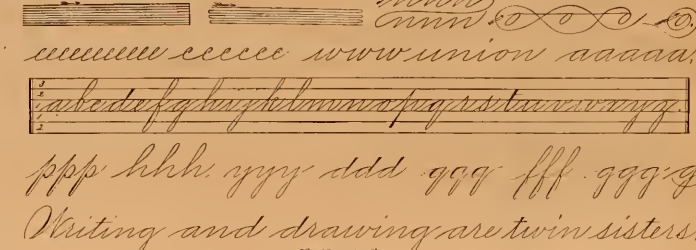 eeeeeeeee cccccc www union aaaaa,
3 2 1 1 2 abcdefghijklmnopqrstuvwxyz.
ppp hhh. yyy ddd qqq fff. ggg g
Writing and drawing are twin sisters